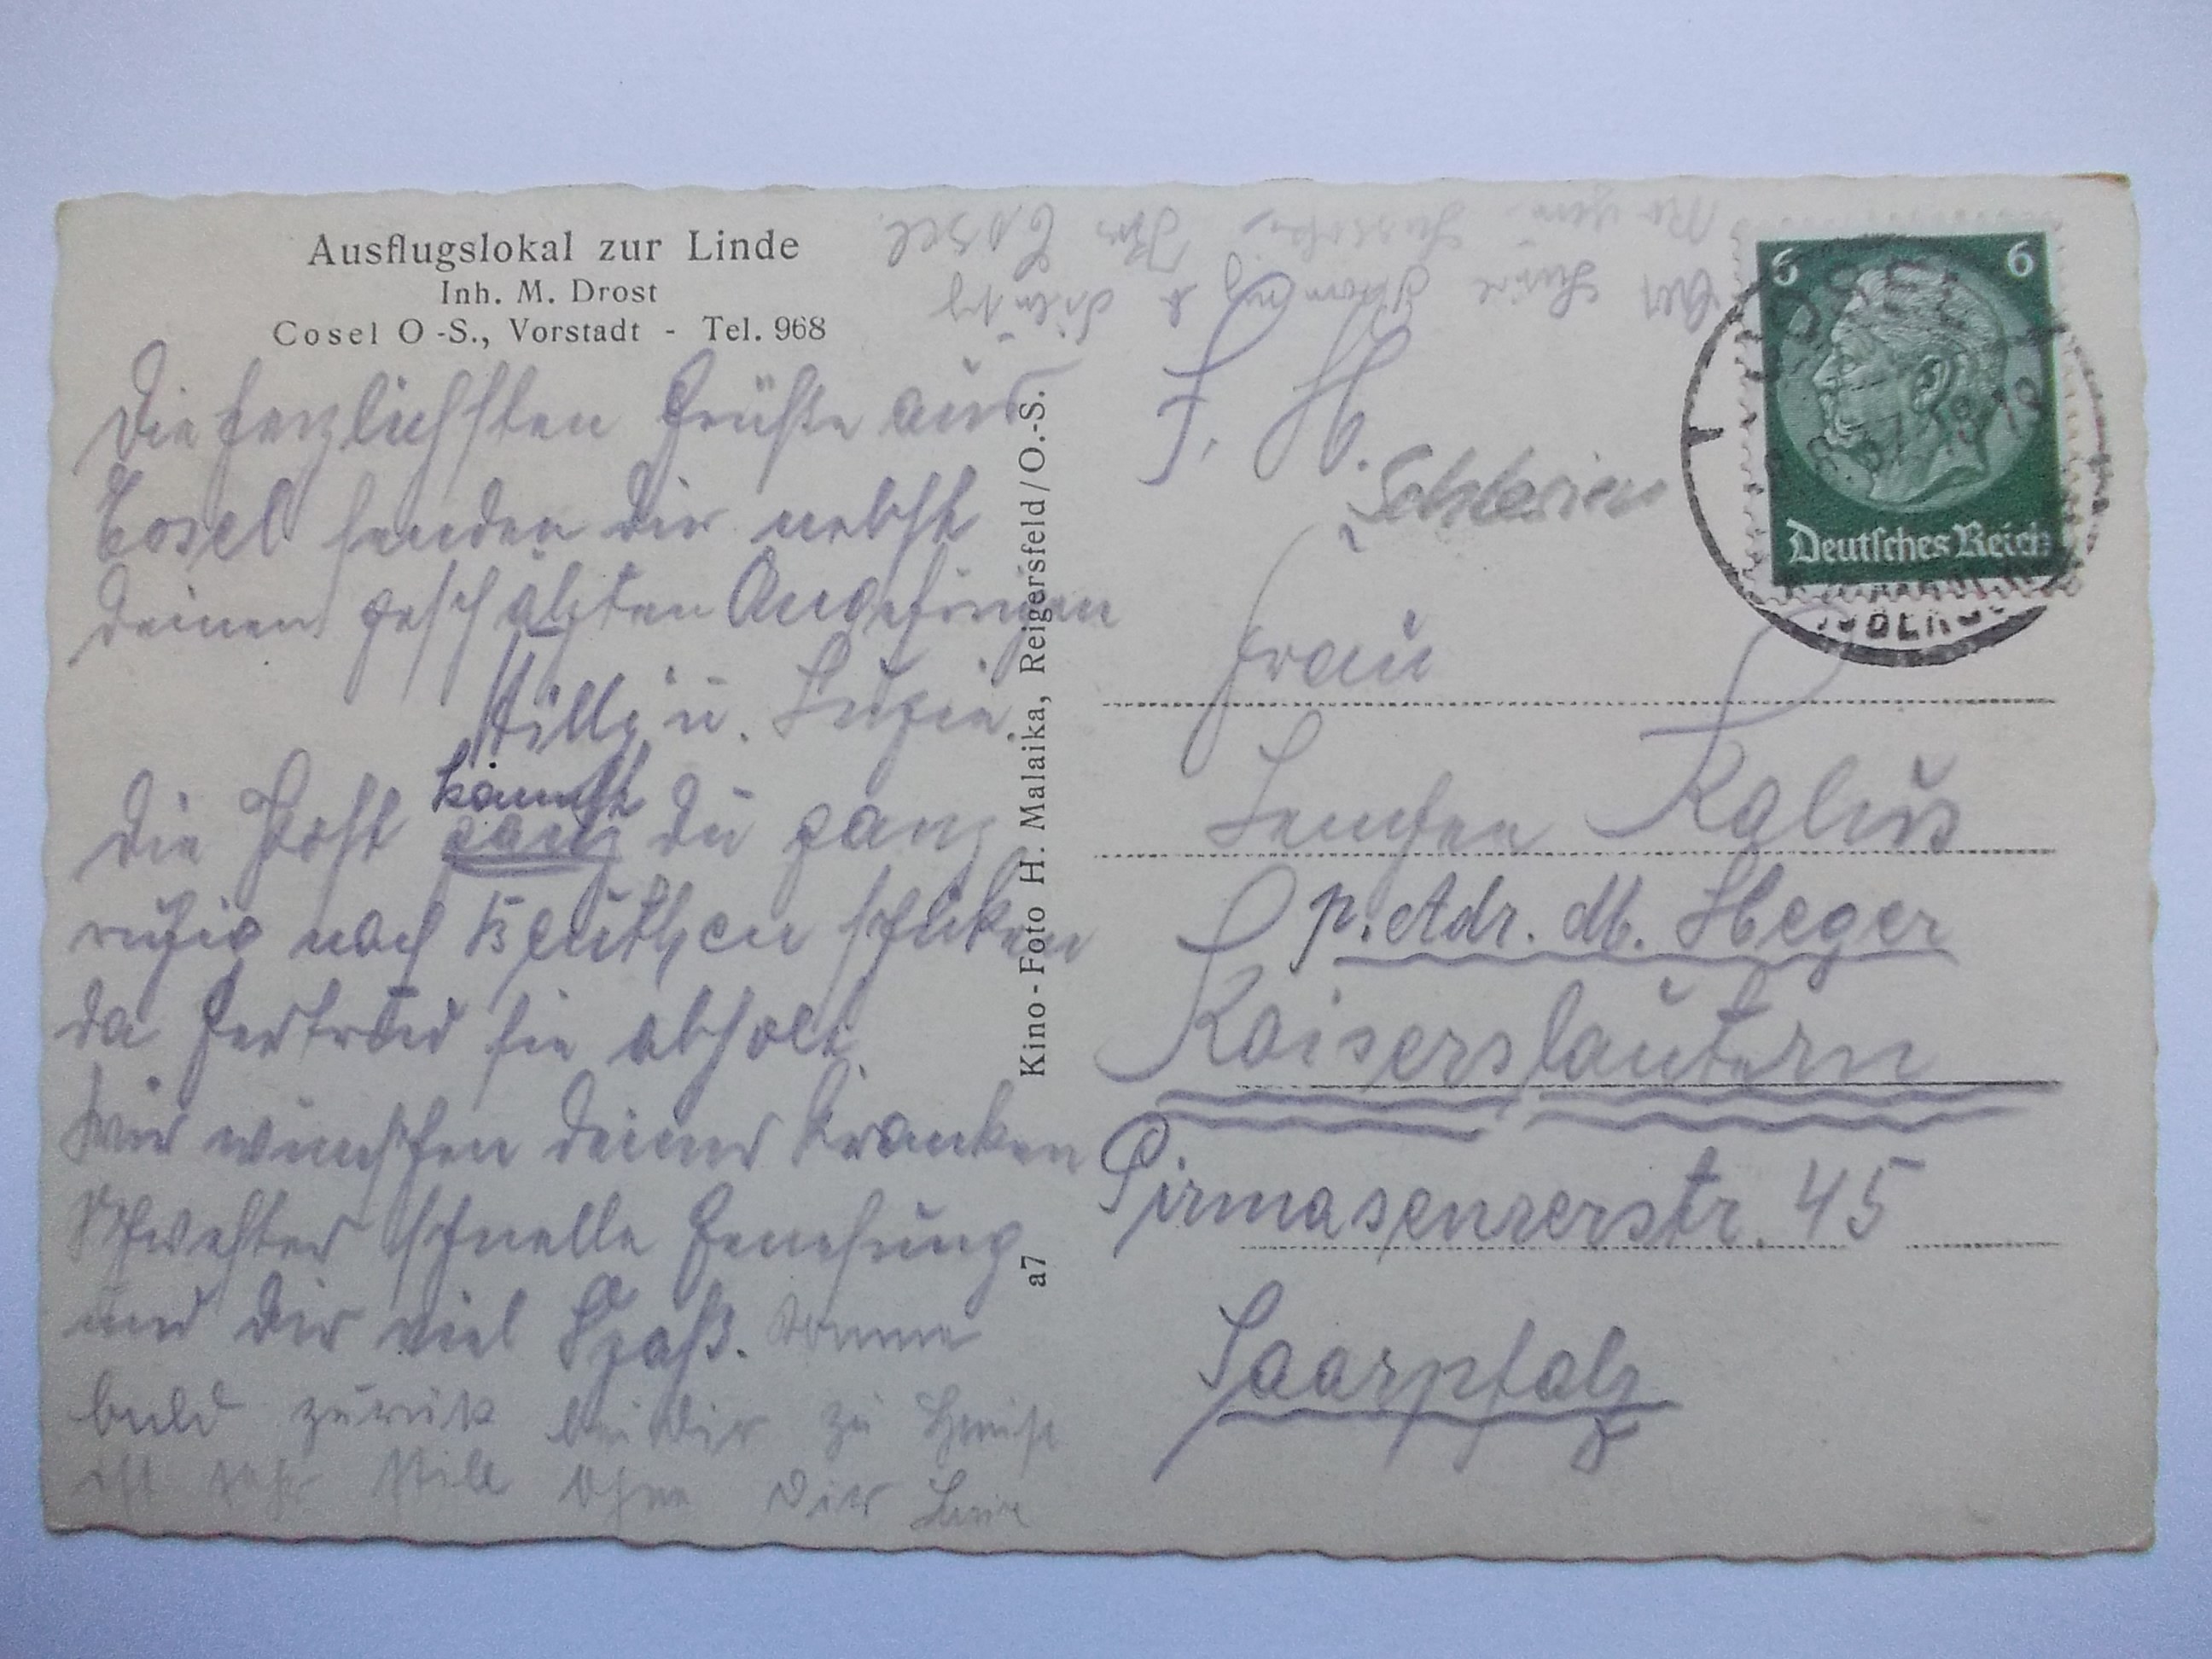 Ausflugslokal zur Linde
Inh. M. Drost
Cosel O-S., Vorstadt - Tel. 968
Die herzlichsten Grüße aus
Cosel senden Dir nebst
Deinen geschätzten Angehörigen
u. Luzie.
Die Post kannst Du ganz
ruhig nach Beuthen schicken
da Gertrud sie abholt.
Wir wünschen Deiner kranken
Schwester schnelle Genesung
und Dir viel Spaß. Komme
bald zurück bei Dir zu Hause
ist sehr still ohne Dir
Kino-Foto H. Malaika, Reigersfeld/O.-S.
a7
Cosel
F. H.
Schlesien
Frau
Lenchen Kalus
p. Adr. M. Heger
Kaiserslautern
Pirmasenserstr. 45
Saarpfalz
6 6
Deutsches Reich
COSEL